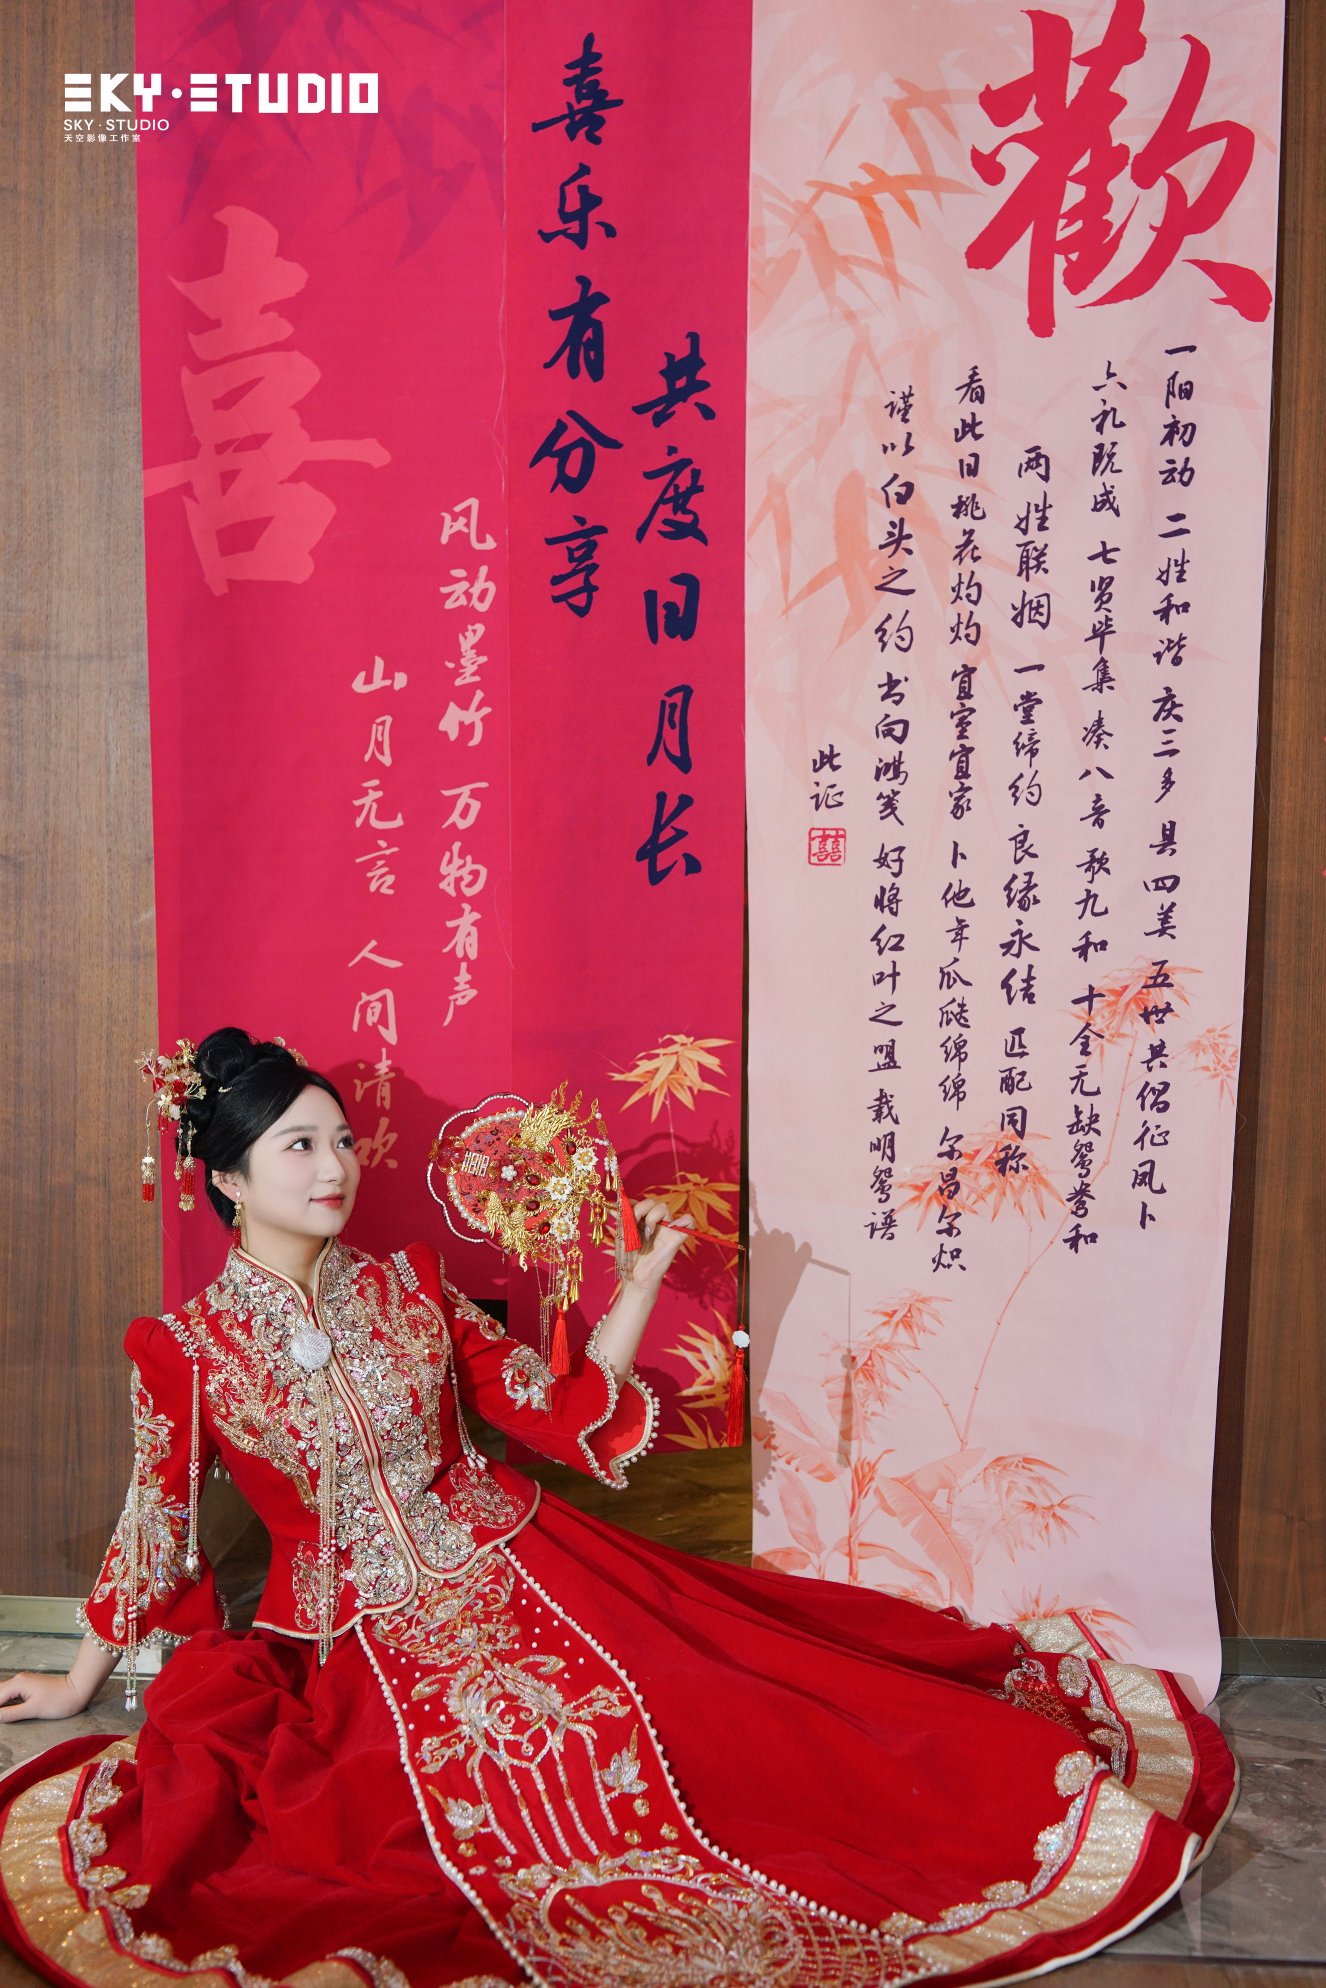 SKY·STUDIO
SKY·STUDIO
天空影像工作室
歡
一阳初动 二姓和谐 庆三多 具四美 五世其倡征凤卜
六礼既成 七贤毕集 凑八音 歌九和 十全无缺鸳鸯和
两姓联姻 一堂缔约 良缘永结 匹配同称
看此日桃花灼灼 宜室宜家 卜他年瓜瓞绵绵 尔昌尔炽
谨以白头之约 书向鸿笺 好将红叶之盟 载明鸳谱
此证
囍
共度日月长
喜乐有分享
风动墨竹 万物有声
山月无言 人间清欢
喜